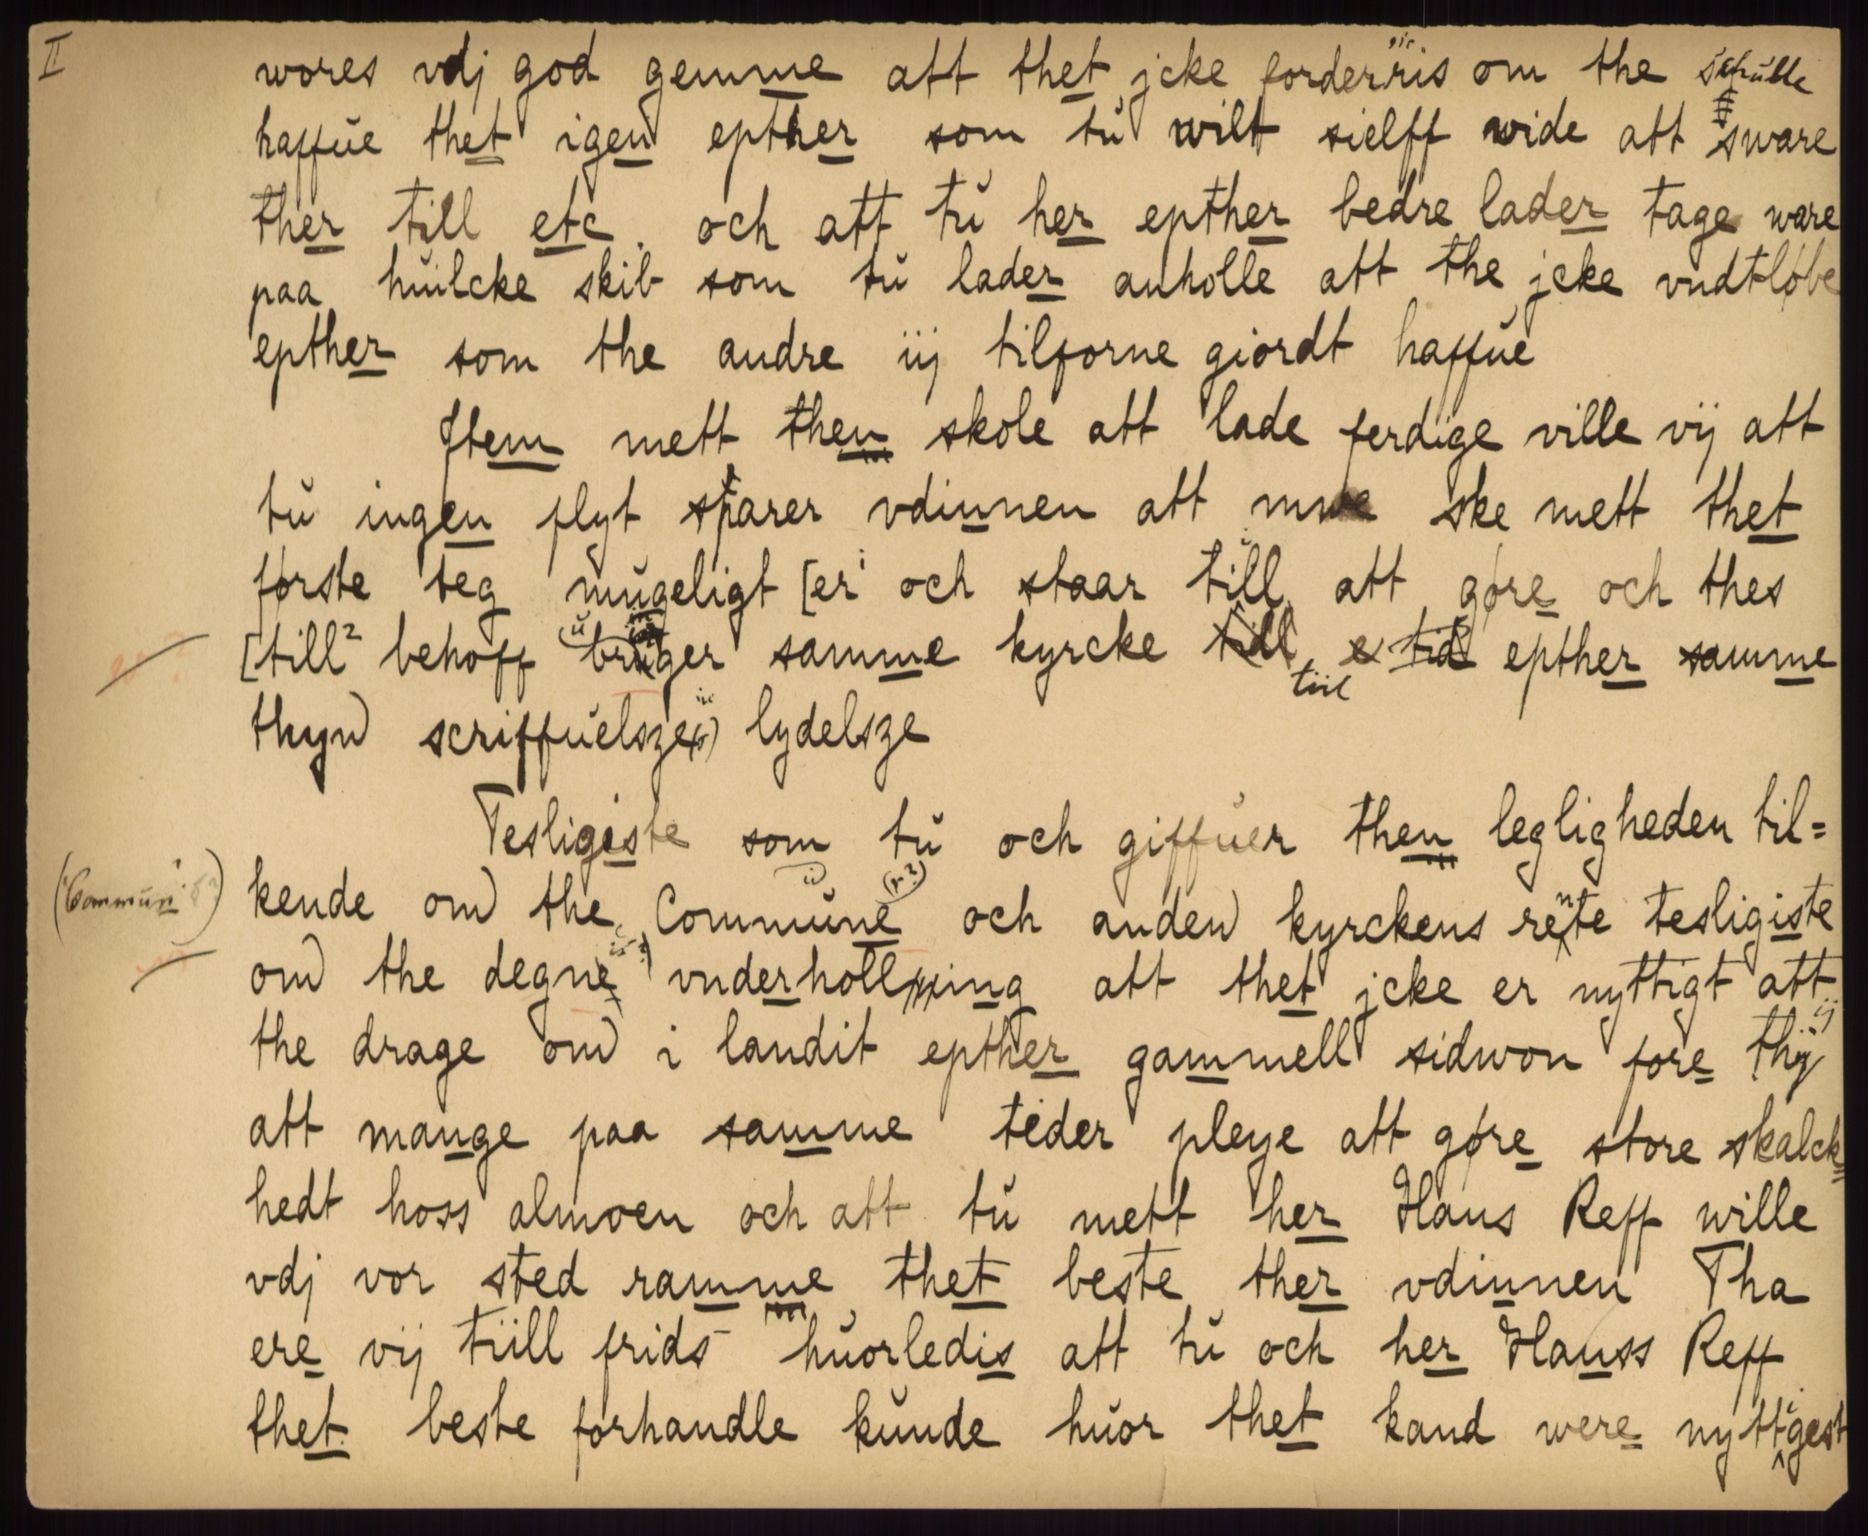 II
wores vdj god gemme att thet jcke forderris om the schulle
haffue thet igen epther som tu wilt sielff wide att sware
ther till etc. och att tu her epther bedre lader tage ware
paa huilcke skib som tu lader anholle att the jcke vndtløbe
epther som the andre iij tilforne giordt haffue
Item mett then skole att lade ferdige ville vij att
tu ingen flyt sparer vdinnen att mwe ske mett thet
første teg mugeligt [er¹ och staar till att gøre och thes
[till² behoff bruger samme kyrcke till epther samme
thyn scriffuelsze lydelsze
Tesligiste som tu och giffuer then legligheden til=
kende om the Commune och anden kyrckens rente tesligiste
(Commun
om the degne vnderholling att thet jcke er nyttigt att
the drage om i landit epther gammell sidwon fore thij
att mange paa samme tider pleye att gøre store skalck=
hedt hoss almoen och att tu mett her Hans Reff wille
vdj vor sted ramme thet beste ther vdinnen Tha
ere vij tiill frids huorledis att tu och her Hanss Reff
thet beste forhandle kunde huor thet kand were nyttigest